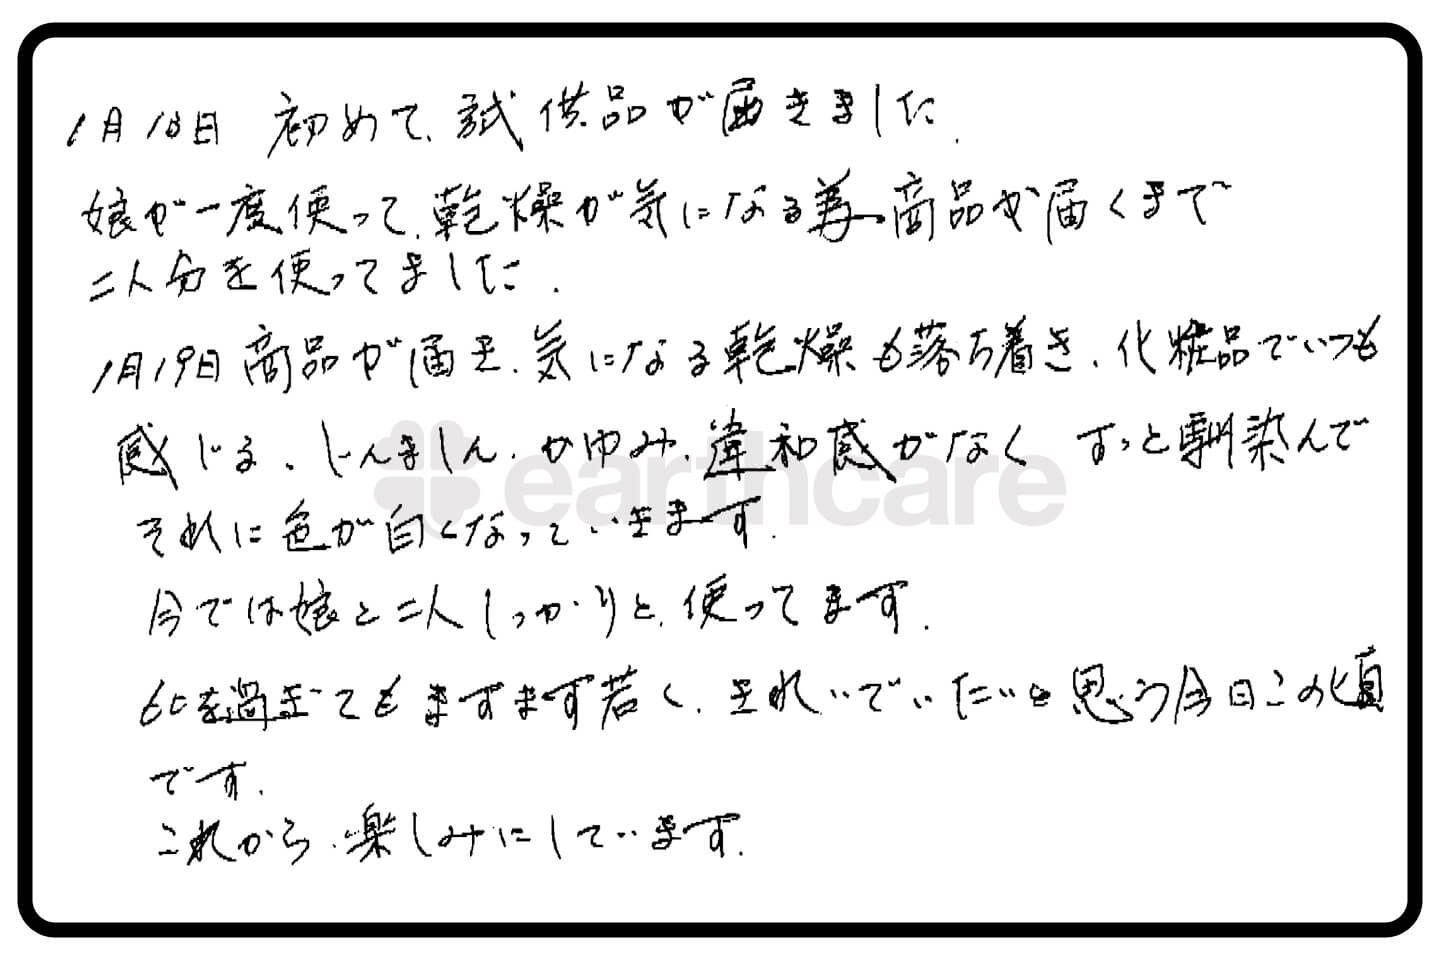 1月18日 初めて、試供品が届きました.
娘が一度使って、乾燥が気になる為、商品が届くまで
二人分を使ってました.
1月19日商品が届き、気になる乾燥も落ち着き、化粧品でいつも
感じる、じんましん、かゆみ、違和感がなく すっと馴染んで
それに色が白くなっていきます.
今では娘と二人しっかりと、使ってます.
60を過ぎてもますます若く、きれいでいたいと思う今日この頃
です.
これから、楽しみにしています.
earthcare